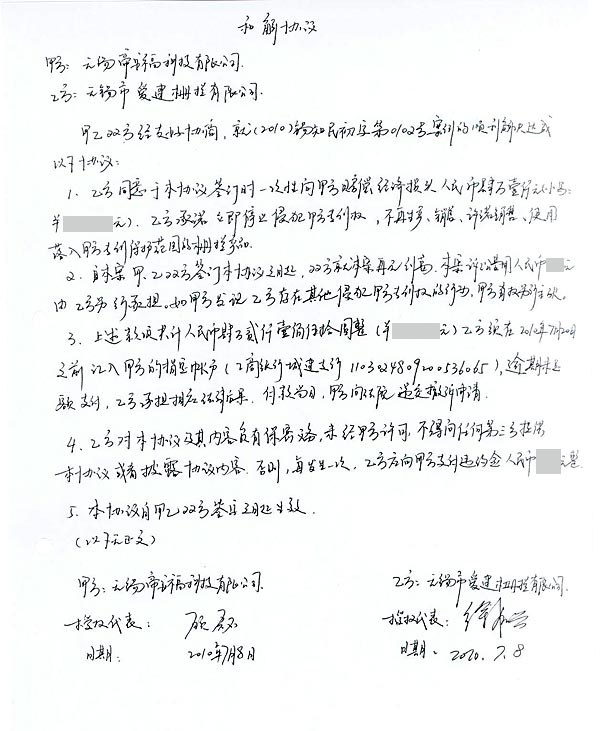 和解协议
甲方:无锡帝科高科技有限公司.
乙方:无锡市爱建栅栏有限公司.
甲乙双方经友好协商,就(2010)锡知民初字第0102号案件的顺利解决达成
以下协议:
1、乙方同意于本协议签订时一次性向甲方赔偿经济损失人民币肆万壹仟元(小写:
¥ 元)、乙方承诺立即停止侵犯甲方专利权,不再制造、销售、许诺销售、使用
落入甲方专利保护范围的栅栏产品.
2、自本案甲、乙双方签订本协议之日起,双方就本案再无纠葛.本案诉讼费用人民币 元
由乙方 承担.如甲方发现乙方存在其他侵犯甲方专利权的行为,甲方有权另行 .
3、上述款项共计人民币肆万贰仟壹佰伍拾圆整(¥ 元)乙方须在2010年7月20日
之前汇入甲方的指定帐户(工商银行城建支行 1103024809200536065),逾期未足
额支付,乙方承担相应法律后果.付款当日,甲方向法院递交撤诉申请.
4、乙方对本协议及其内容负有保密义务,未经甲方许可,不得向任何第三方提供
本协议或者披露协议内容.否则,每发生一次,乙方应向甲方支付违约金人民币 元整.
5、本协议自甲乙双方签字之日起生效.
(以下无正文)
甲方:无锡帝科高科技有限公司.
乙方:无锡市爱建栅栏有限公司.
授权代表:
授权代表:
日期: 2010年7月8日
日期: 2010.7.8